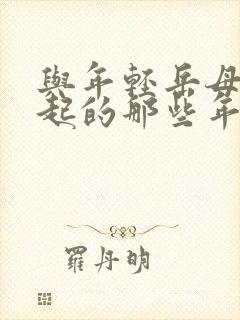 與年輕岳母
起的那些年
羅丹明